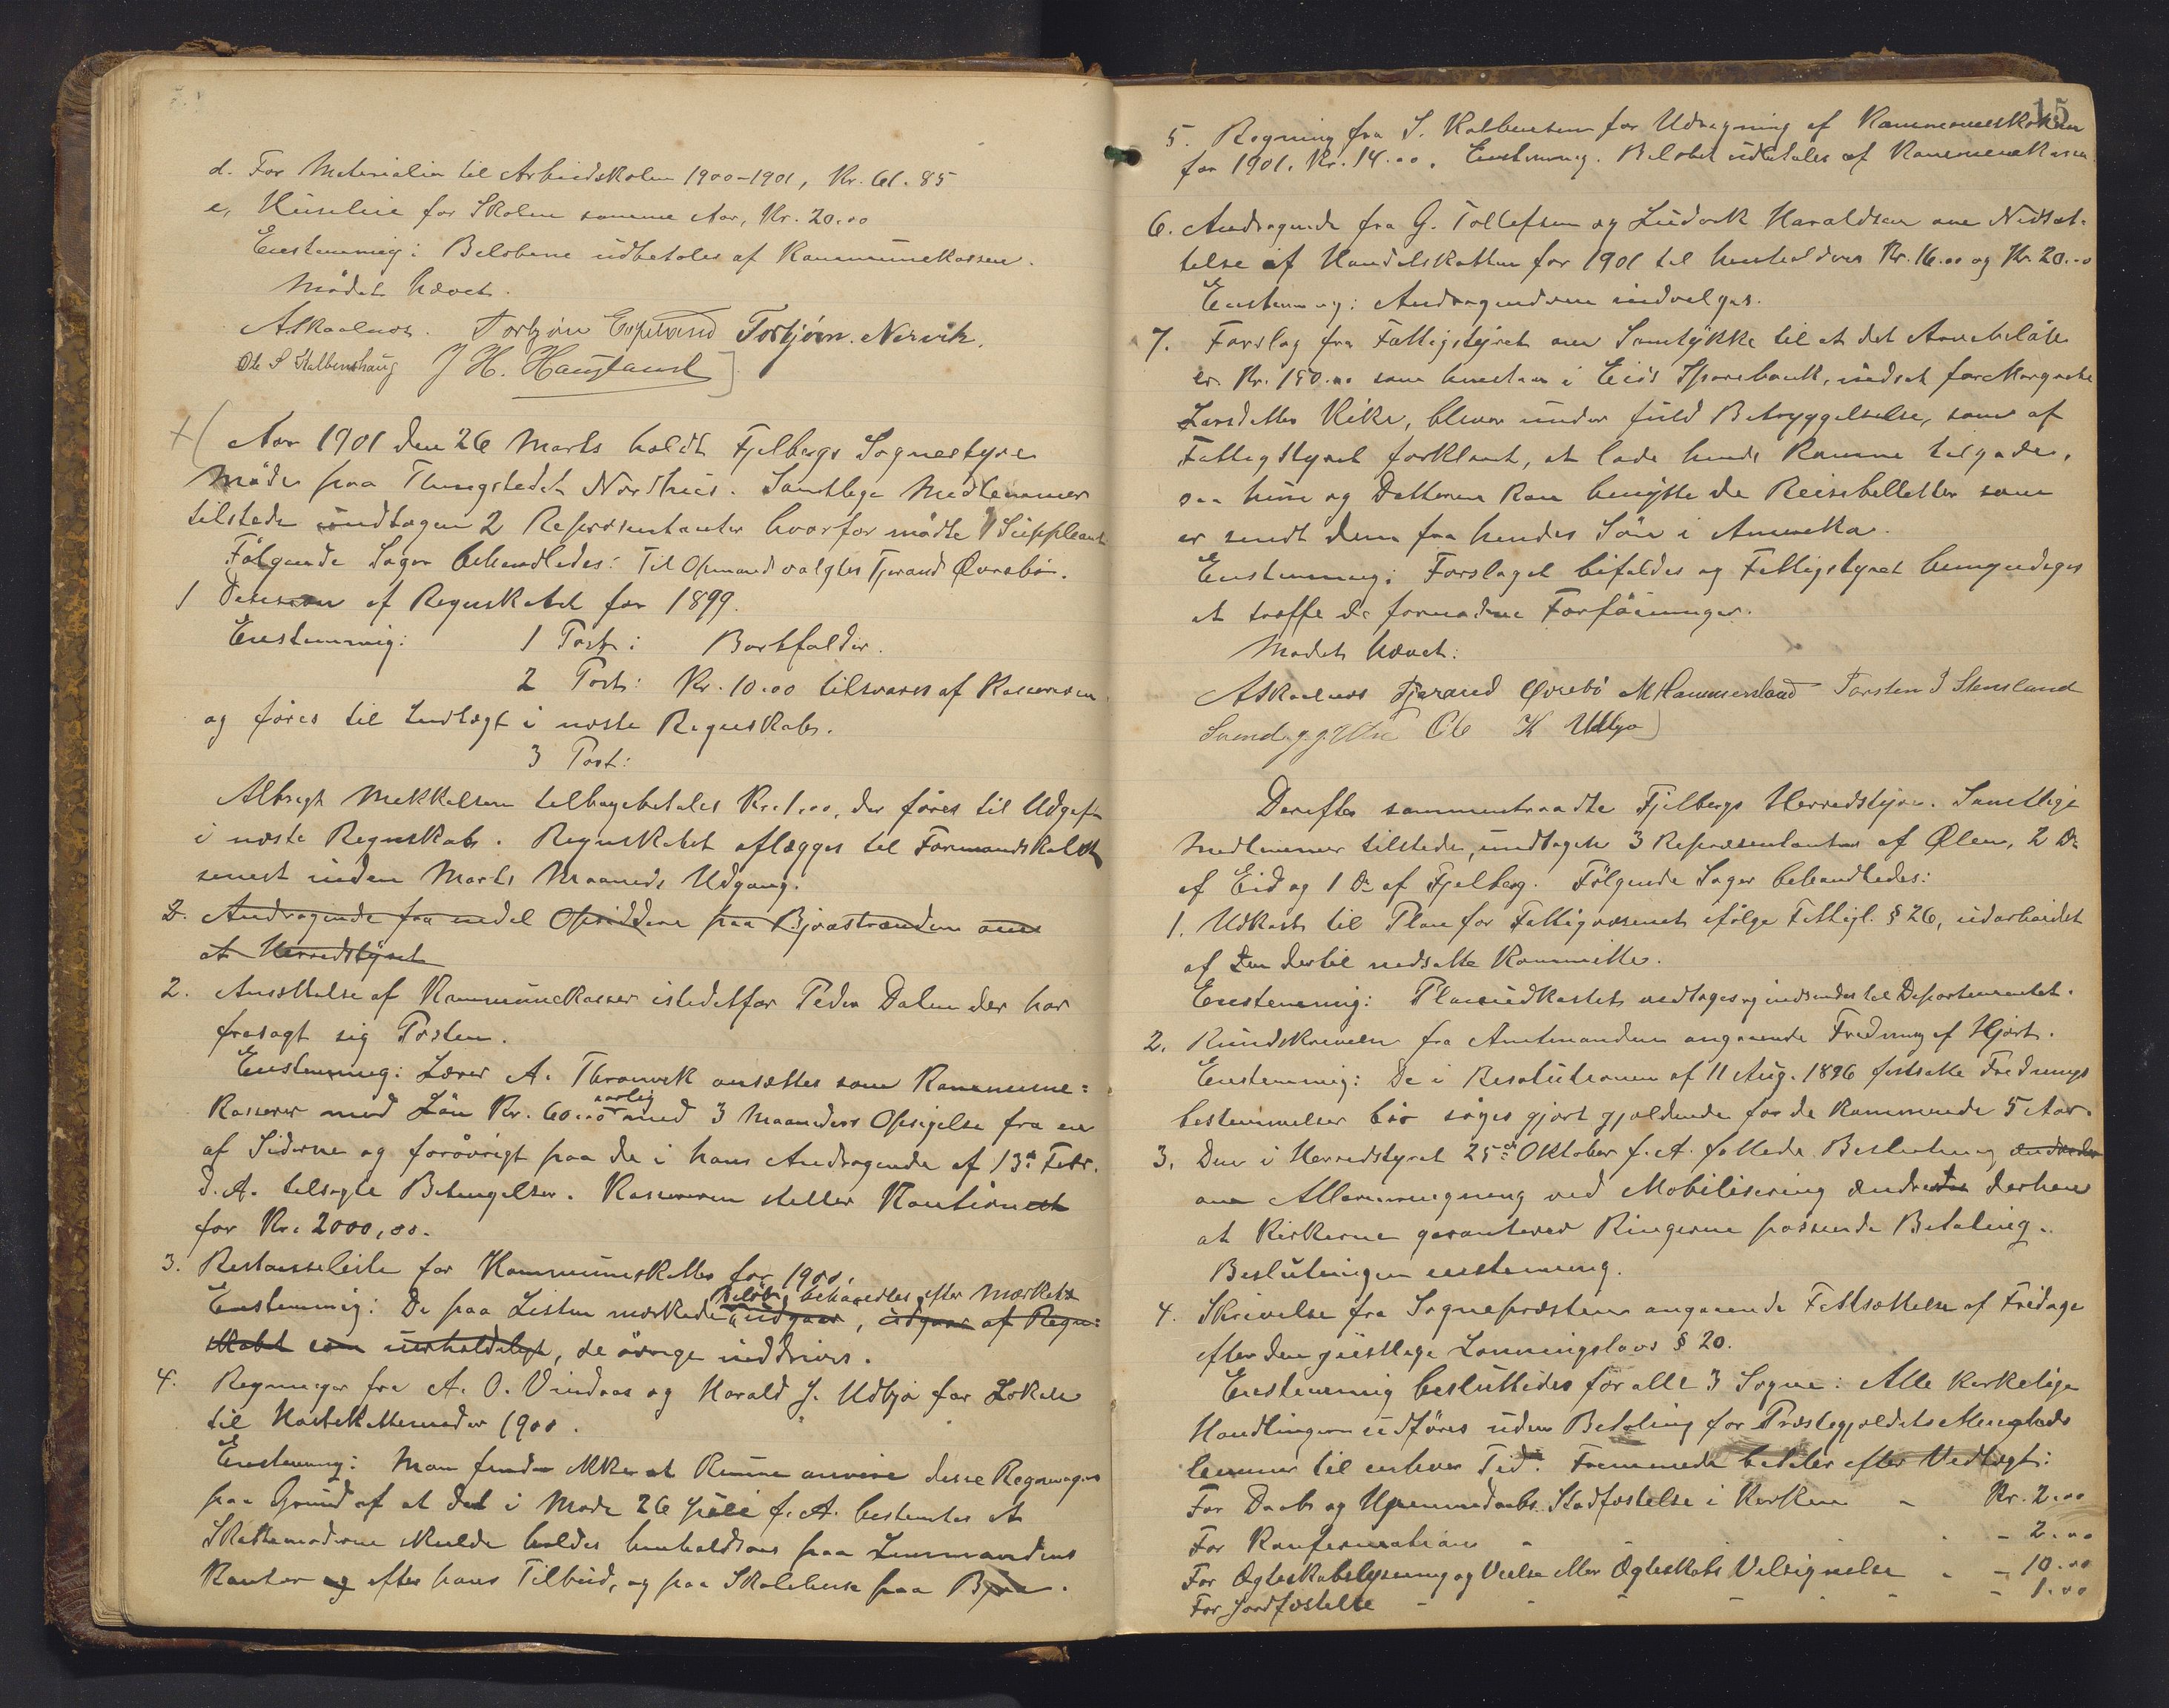 d. For Materialier til Arbeidskolen 1900-1901, Kr. 61.85
e, Husleie for Skolen samme Aar, Kr. 20.00
Enstemmig: Belöbene udbetales af Kommunekassen.
Mødet hævet.
Torbjørn Nervik.
J H. Haugland
Aar 1901 den 26 Marts holdt Fjelbergs Sognestyre
Møde paa Thingstedet Nordhus. Samtlige Medlemmer
tilstede undtagen 2 Repræsentanter hvorfor mødte 1 Suppleant
Følgende Sager behandledes: Til Opmand valgtes Tjerand Øvrebø.
1 Decision af Regnskabet for 1899.
Enstemmig: 1 Post: Bortfalder.
2 Post: Kr. 10.00 tilsvares af Kassereren
og føres til Indtægt i næste Regnskab.
3 Post:
Albregt Mikkelsen tilbagebetales Kr. 1.00, der føres til Udgift
i næste Regnskab. Regnskabet aflægges til Formandskabet
senest inden Marts Maaneds Udgang.
2. Andragende fra endel Opsiddere paa Bjoastranden om
at Herredstyret
2. Ansættelse af Kommunekasser istedetfor Peder Dalen der har
frasagt sig Posten.
Enstemmig: Lærer A. Thronvik ansættes som Kommune=
kasserer med Løn Kr. 60.00 aarlig med 3 Maaneders Opsigelse fra en
af Siderne og forøvrigt paa de i hans Andragende af 13de Febr.
d. A. tilsagte Betingelser. Kassereren stiller Kaution
for Kr. 2000,00.
3. Restanseliste for Kommuneskatter for 1900.
Enstemmig: De paa Listen mærkede Beløb behandles efter Mærket udgaar, udgaar af Regn:
skabet som uerholdeligt, de øvrige inddrives.
4. Regninger fra A. O. Vindnes og Harald J. Udbjø for Lokale
til Skattemøder 1900.
Enstemmig: Man finder ikke at kunne anvise disse Regninger
paa Grund af at det i Møde 26 Juli f. A. bestemtes at
Skattemøderne skulde holdes henholdsvis paa Lensmandens
Kontor og efter hans Tilbud, og paa Skolehuse paa Bjoa.
15
5. Regning fra S. for Udregning af Kommuneskatten
for 1901. Kr. 14.00. Enstemmig. Beløbet udbetales af Kommunekassen
6. Andragende fra G. Tollefsen og Ludvik Haraldsen om Nedsæt-
telse af Handelskatten for 1901 til henholdsvis Kr. 16.00 og Kr. 20.00
Enstemmig: Andragenderne indvilges.
7. Forslag fra Fattigstyret om Samtykke til at det
Kr. 150.00 som i Eids Sparebank, indsat for Margrethe
Larsdatter Vike, bliver under fuld Betryggelse, som af
Fattigstyret forklaret, at lade hende komme tilgode,
saa hun og Datteren kan benytte de Reisebilletter som
er sendt dem fra hendes Søn i Amerika.
Enstemmig: Forslaget bifaldes og Fattigstyret bemyndiges
at træffe de fornødne Forføininger.
Mødet hævet:
Tjerand Øvrebö M Hammersland Torsten J Stensland
Ole K Udbjø
Derefter sammentraadte Fjelbergs Herredstyre. Samtlige
Medlemmer tilstede, undtagen 3 Repræsentanter af Ølen, 2 Do
af Eid og 1 Do af Fjelberg. Følgende Sager behandledes:
1. Udkast til Plan for Fattigvæsenet ifølge Fattigl. § 26, udarbeidet
af den dertil nedsatte Kommitte.
Enstemmig: Planudkastet vedtages og indsendes til Departementet.
2. Rundskrivelse fra Amtmanden angaaende Fredning af Hjort.
Enstemmig: De i Resolutionen af 11 Aug. 1896 fastsatte Frednings
bestemmelser bør søges gjort gjældende for de kommende 5 Aar.
3. Den i Herredstyret 25de Oktober f. A. fattede Beslutning
om Allarmringning ved Mobilisering ændredes derhen
at Kirkerne garanterer Ringerne passende Betaling.
Beslutningen enstemmig.
4. Skrivelse fra Sognepræsten angaaende Fastsættelse af
efter den geistlige Lønningslovs § 20.
Enstemmig besluttedes for alle 3 Sogne: Alle kirkelige
Handlinger udføres uden Betaling for Præstegjældets Menigheds
lemmer til enhver Tid. Fremmede betaler efter Vedtægt:
For Daab og Hjemmedaabs Stadfæstelse i Kirken - Kr. 2.00
For Konfirmation - - 2.00
For Ægteskabslysning og Vielse eller Ægteskabs Velsignelse - - 10.00
For Jordfæstelse - - - - - - 1.00